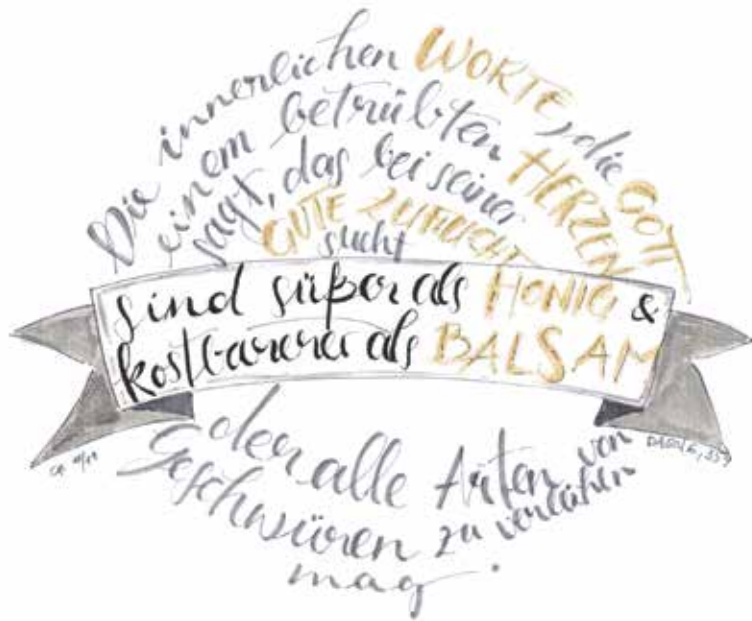 Die innerlichen WORTE, die GOTT
einem betrübten HERZEN
sagt, das bei seiner
GÜTE ZUFLUCHT
sucht
sind süßer als HONIG &
kostbarer als BALSAM
der alle Arten von
Geschwüren zu
mag.